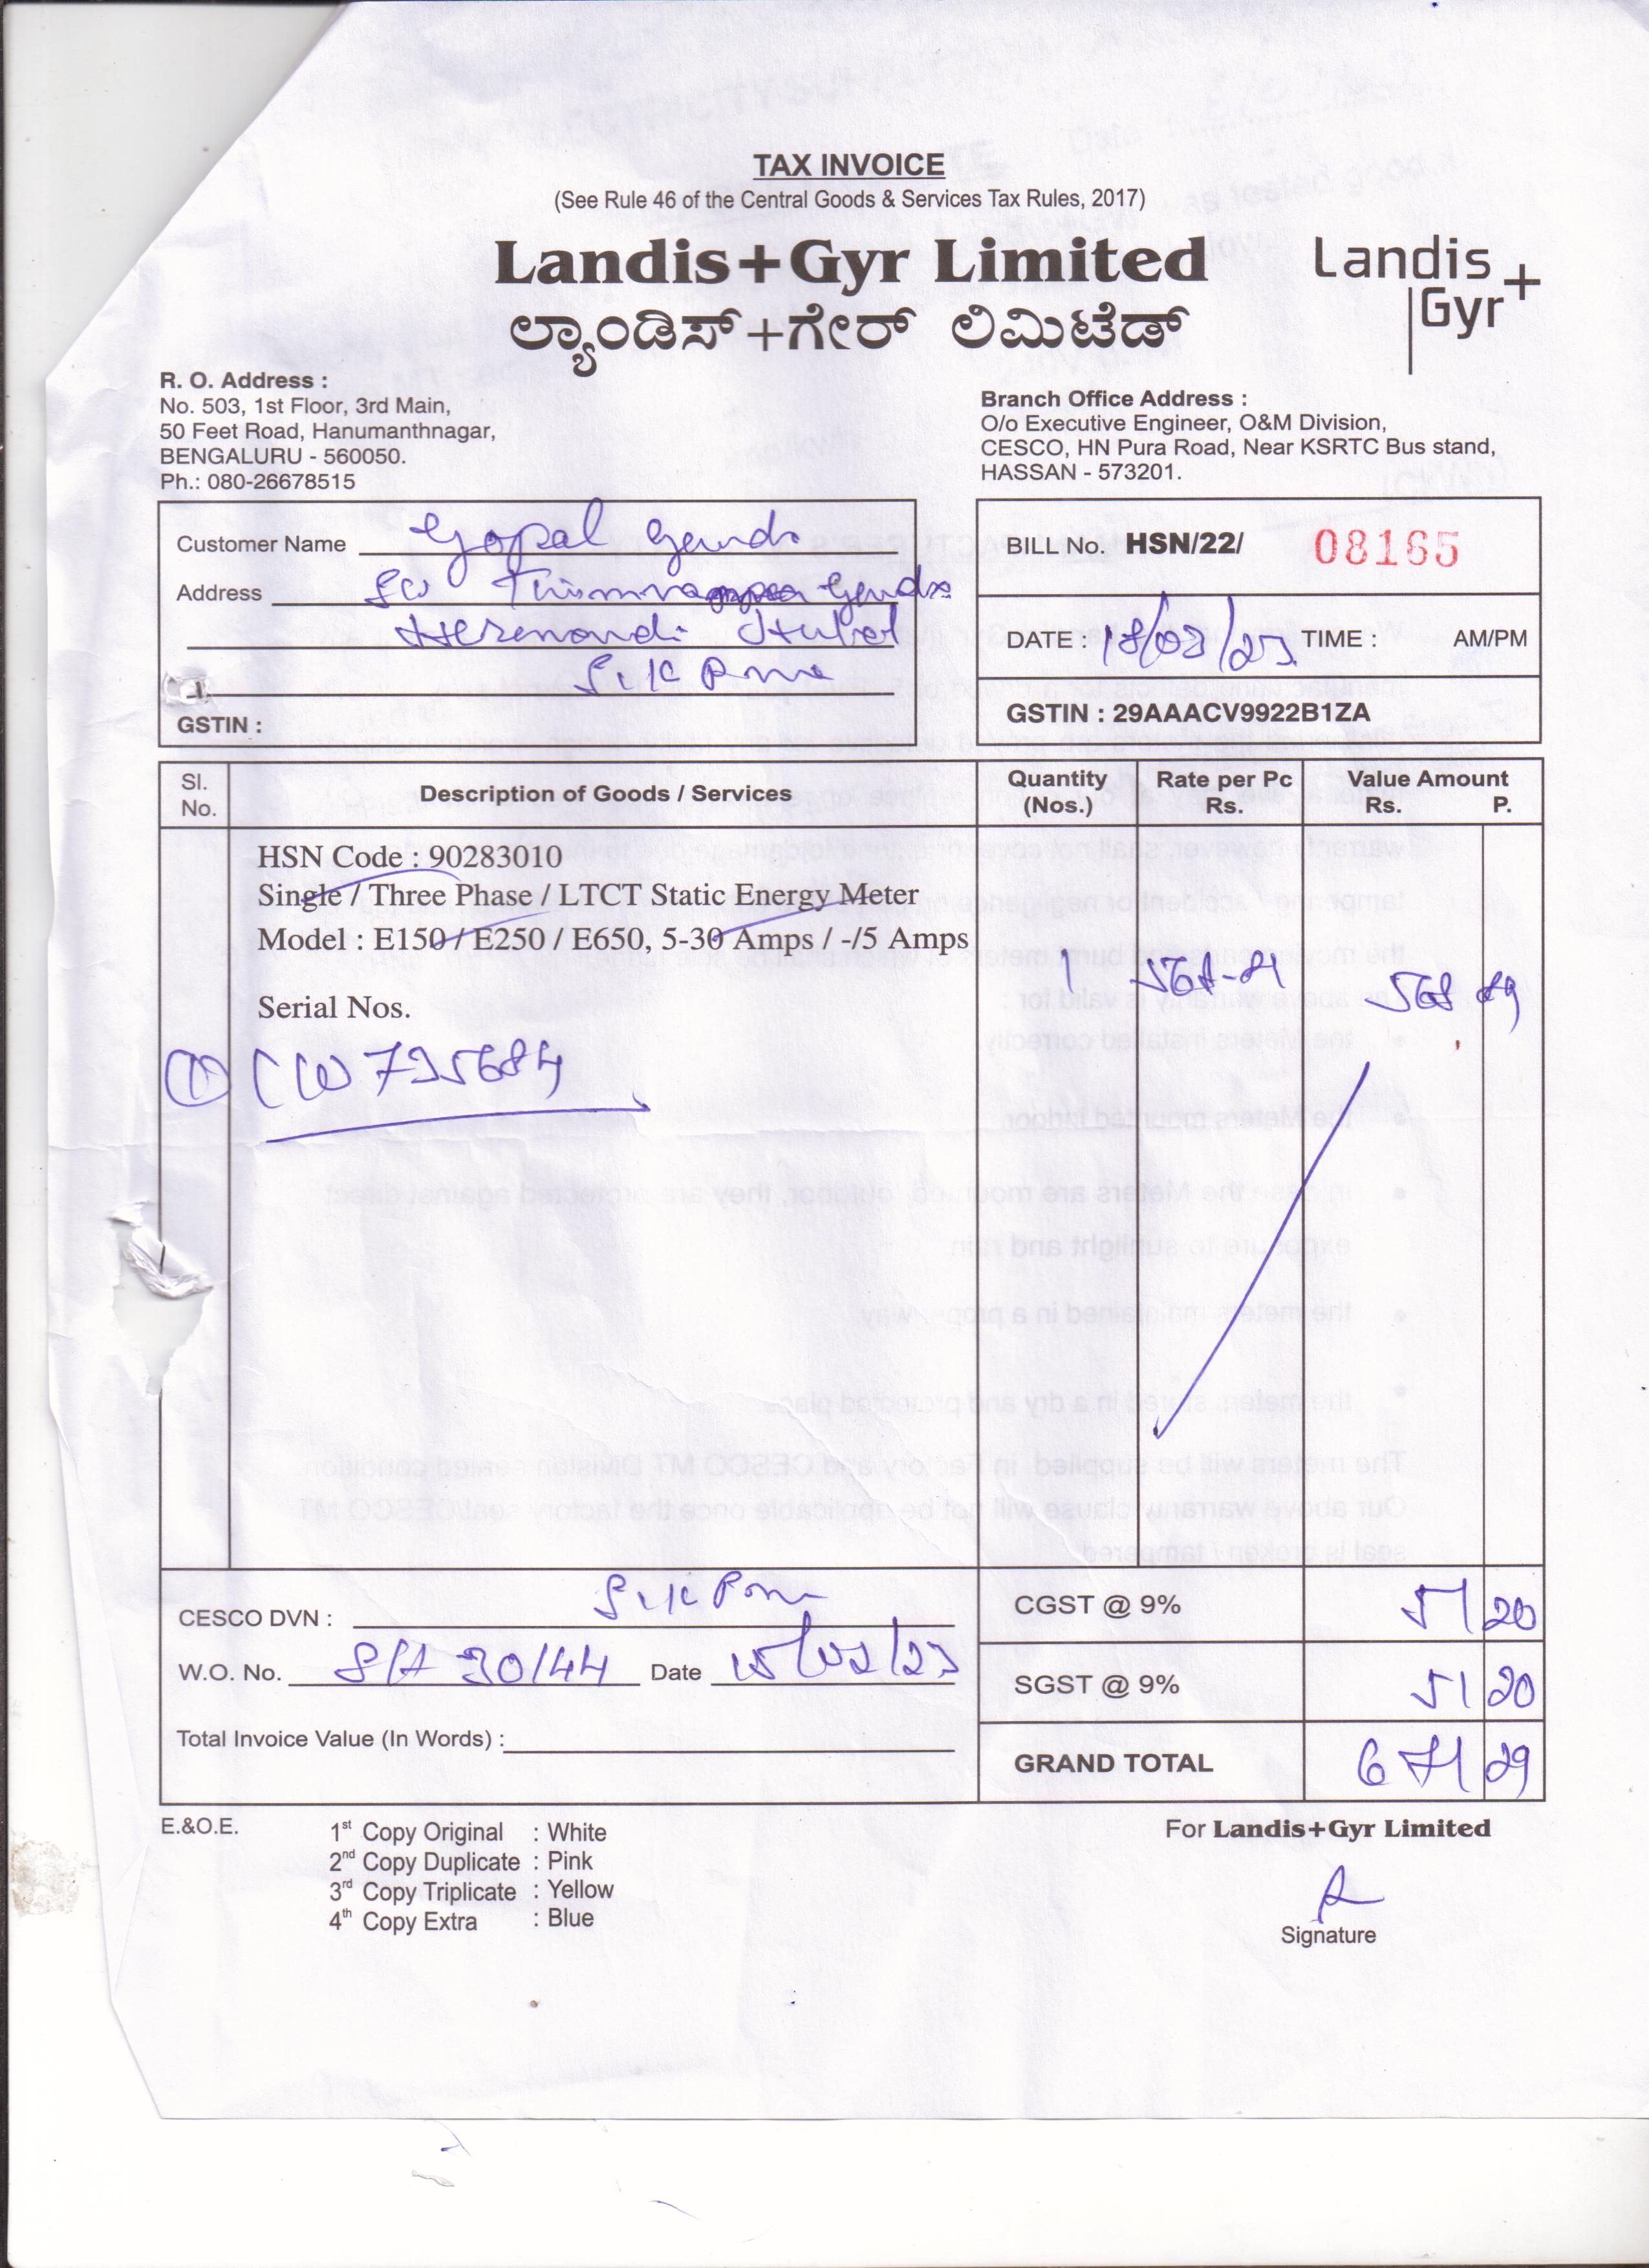 TAX INVOICE
(See Rule 46 of the Central Goods & Services Tax Rules, 2017)
Landis+Gyr Limited
ಲ್ಯಾಂಡಿಸ್+ಗೇರ್ ಲಿಮಿಟೆಡ್
Landis
Gyr+
R. O. Address :
No. 503, 1st Floor, 3rd Main,
50 Feet Road, Hanumanthnagar,
BENGALURU - 560050.
Ph.: 080-26678515
Branch Office Address :
O/o Executive Engineer, O&M Division,
CESCO, HN Pura Road, Near KSRTC Bus stand,
HASSAN - 573201.
Customer Name Gopal Gowda
Address
GSTIN :
BILL No. HSN/22/ 08165
DATE : TIME : AM/PM
GSTIN : 29AAACV9922B1ZA
Sl. No. Description of Goods / Services Quantity (Nos.) Rate per Pc Rs. Value Amount Rs. P.
HSN Code : 90283010
Single / Three Phase / LTCT Static Energy Meter
Model : E150 / E250 / E650, 5-30 Amps / -/5 Amps
1
Serial Nos.
CESCO DVN :
W.O. No. Date
Total Invoice Value (In Words) :
CGST @ 9% 51 20
SGST @ 9% 51 20
GRAND TOTAL 671 29
E.&O.E.
1st Copy Original : White
2nd Copy Duplicate : Pink
3rd Copy Triplicate : Yellow
4th Copy Extra : Blue
For Landis+Gyr Limited
Signature